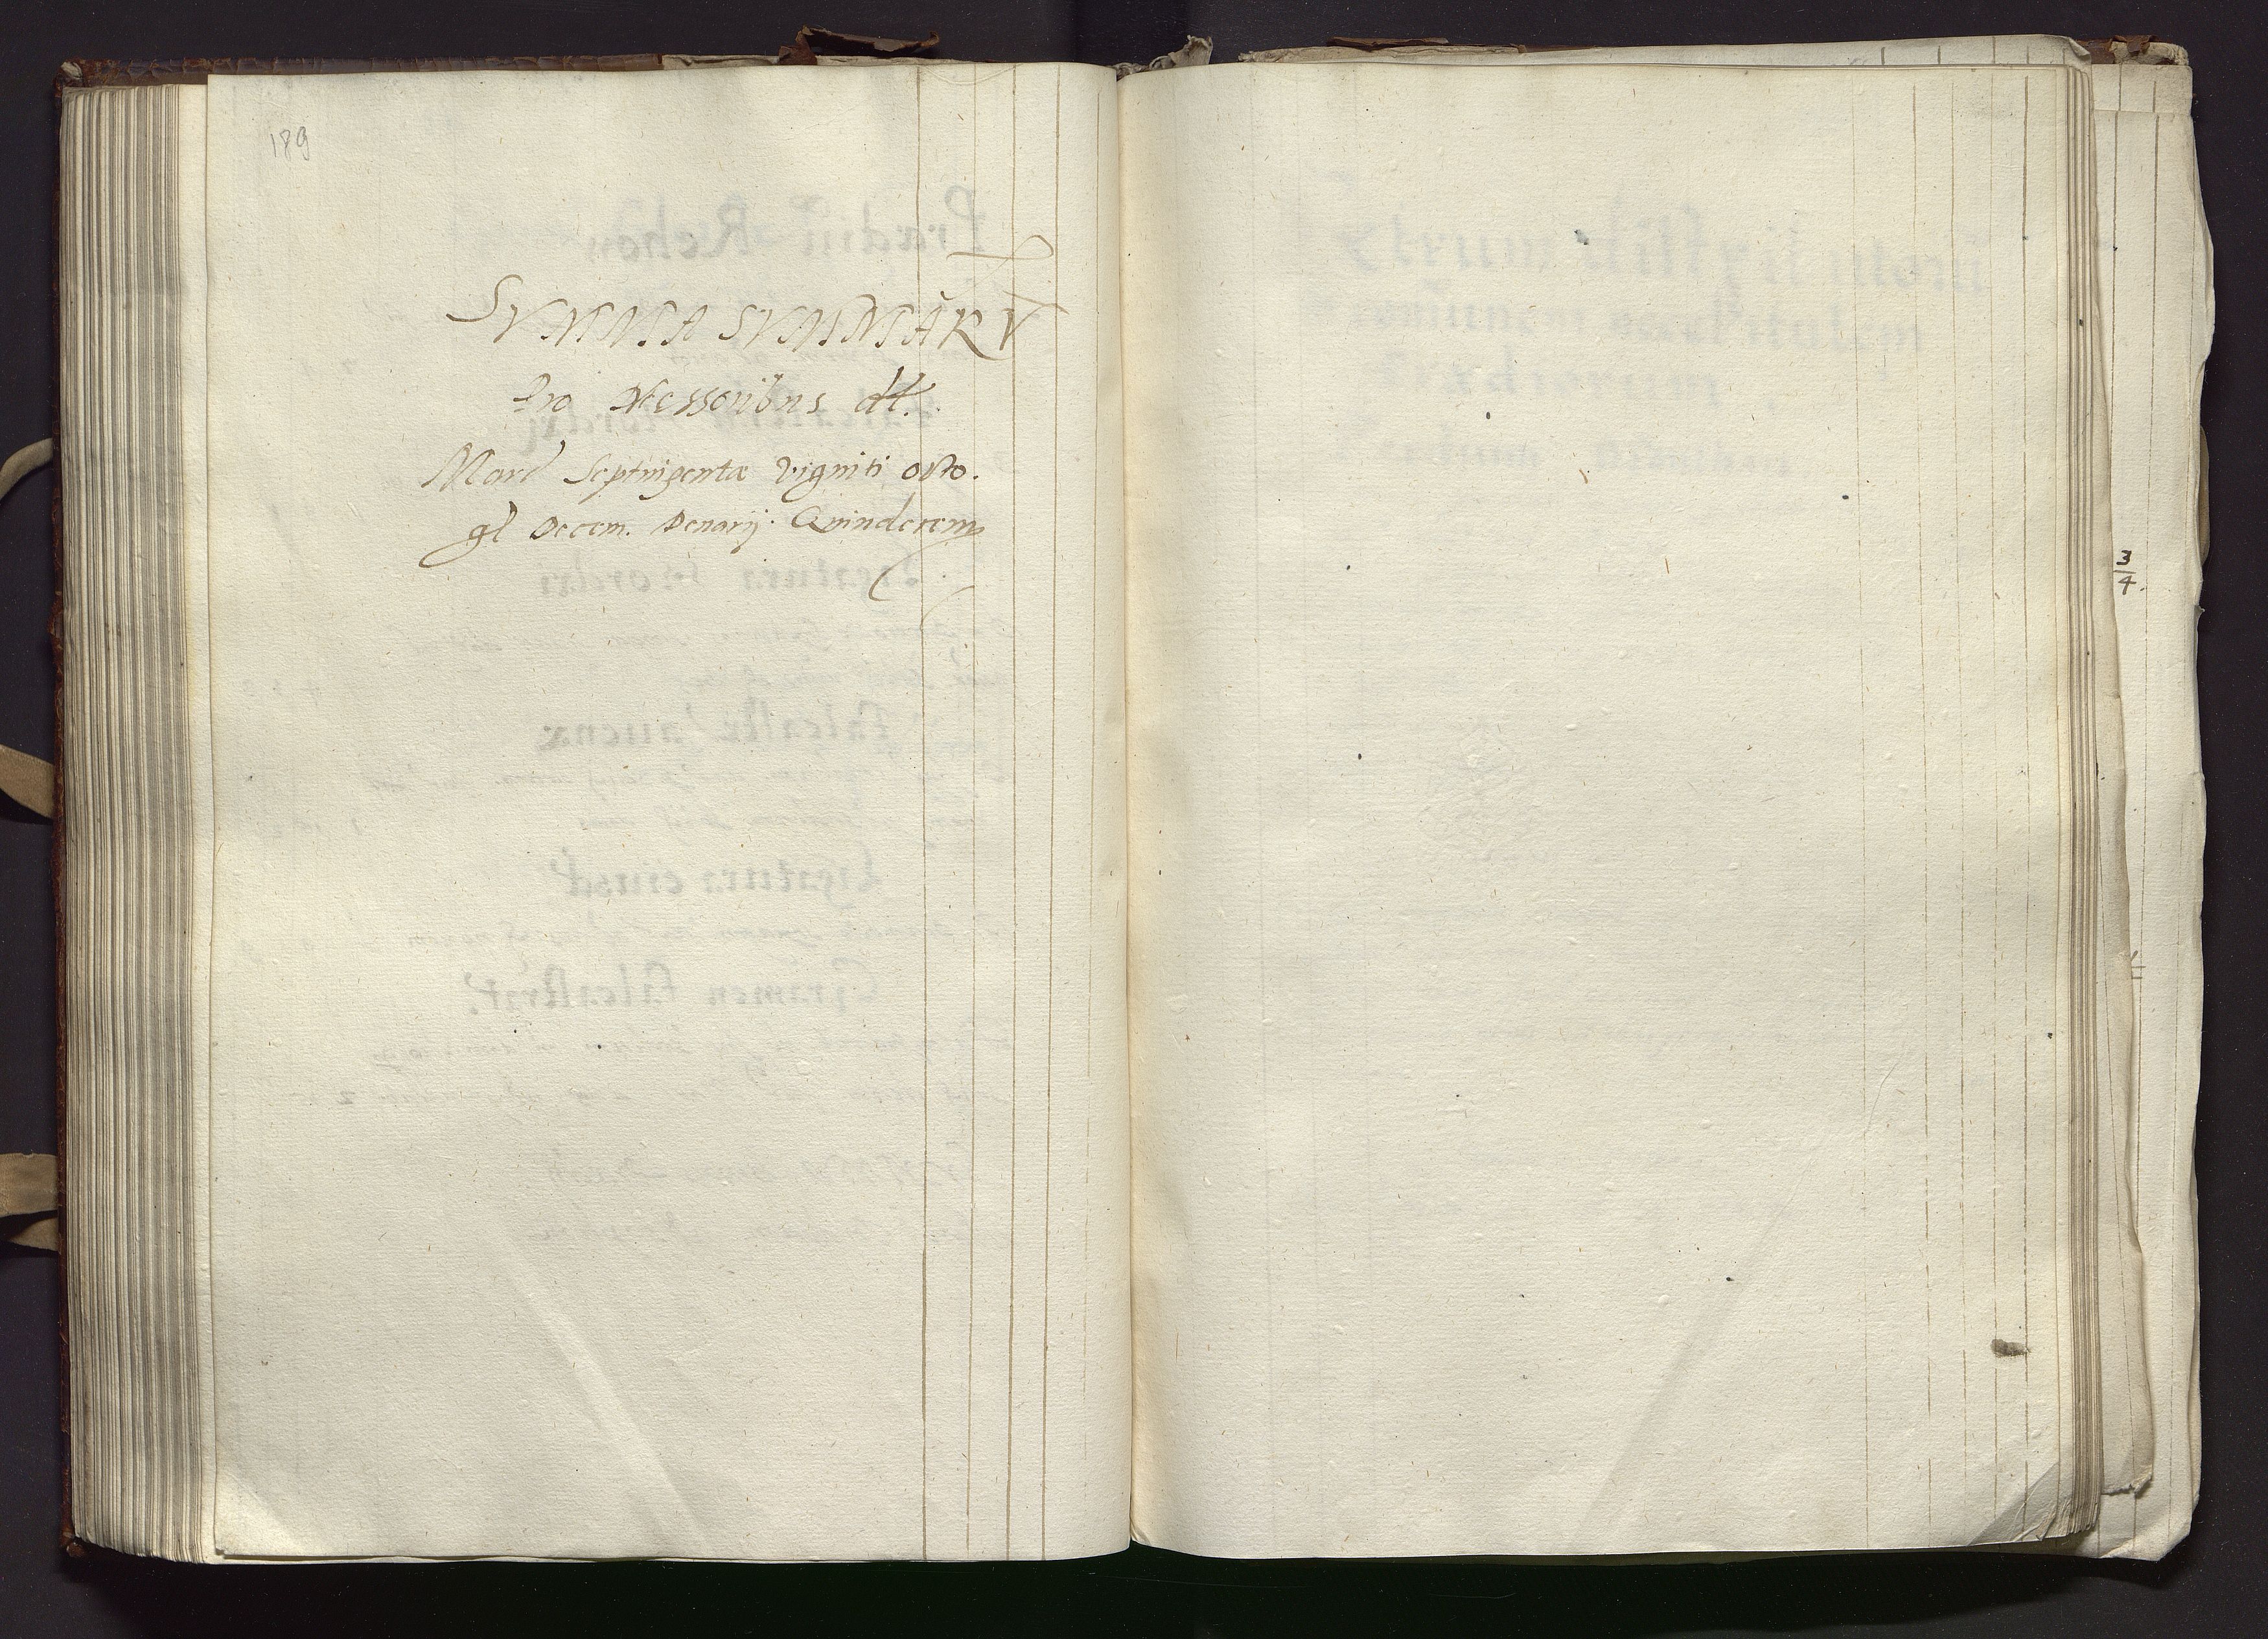 189
SVMMA SVMMARV
Pro Messoribus dt.
Marc Septingentæ vigniti octo.
gl Decem. Denarij. Quindecem
3
4.